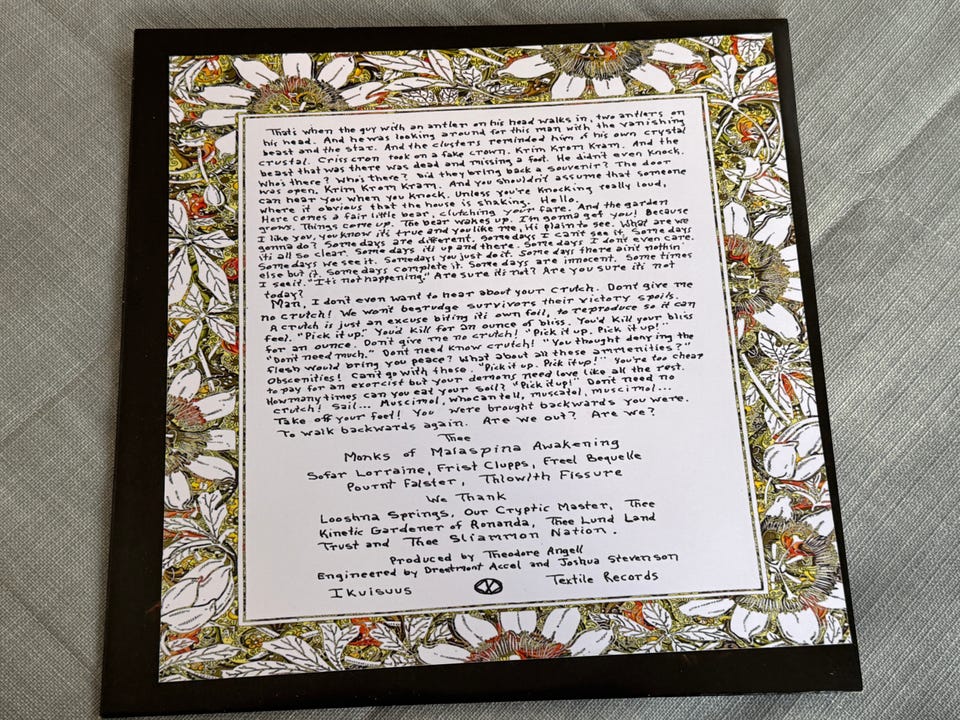 Thats when the guy with an antler on his head walks in, two antlers on
his head. And he was looking around for this man with the vanishing
beast and the star. And the clusters reminded him of his own crystal
crystal. Criss cron took on a fake crown. Krim Krom Kram. And the
beast that was there was dead and missing a foot. He didn't even knock.
Who's there? Who's there? Did they bring back a souvenir? The door
was open. Krim Krom Kram. And you shouldn't assume that someone
can hear you when you knock. Unless you're knocking really loud,
where it obvious that the house is shaking. Hello.
Here comes a fair little bear, clutching your fare. And the garden
grows. Things come up. The bear wakes up. I'm gonna get you! Because
I like you, you know it's true and you like me, Hi plain to see. What are we
gonna do? Some days are different. Somedays I can't see it. Some days
it's all so clear. Some days it's up and there. Some days I don't even care.
Some days we see it. Somedays you just do it. Some days there ain't nothin'
else but it. Some days complete it. Some days are innocent. Some times
I see it. "It's not happening." Are sure it's not? Are you sure it's not
today?
Man, I don't even want to hear about your crutch. Don't give me
no crutch! We won't begrudge survivors their victory spoils.
A crutch is just an excuse biting it's own foil, to reproduce so it can
feel. "Pick it up." You'd kill for an ounce of bliss. You'd kill your bliss
for an ounce. Don't give me no crutch! "Pick it up. Pick it up!"
"Don't need much." Don't need know crutch! "You thought denying the
flesh would bring you peace? What about all these ammenities?"
Obscenities! Can't go with those. "Pick it up. Pick it up!" You're too cheap
to pay for an exorcist but your demons need love like all the rest.
How many times can you eat your soil? "Pick it up!" Don't need no
crutch! Sail... Muscimol, who can tell, muscatol, muscimol...
Take off your feet! You were brought backwards you were.
To walk backwards again. Are we out? Are we?
Thee
Monks of Malaspina Awakening
Sofar Lorraine, Frist Clupps, Freel Bequelle
Pournt Falster, Thlowlth Fissure
We Thank
Looshna Springs, Our Cryptic Master, Thee
Kinetic Gardener of Ronanda, Thee Lund Land
Trust and Thee Sliammon Nation.
Produced by Theodore Angell
Engineered by Dreetmont Accel and Joshua Stevenson
Ikuisuus Textile Records